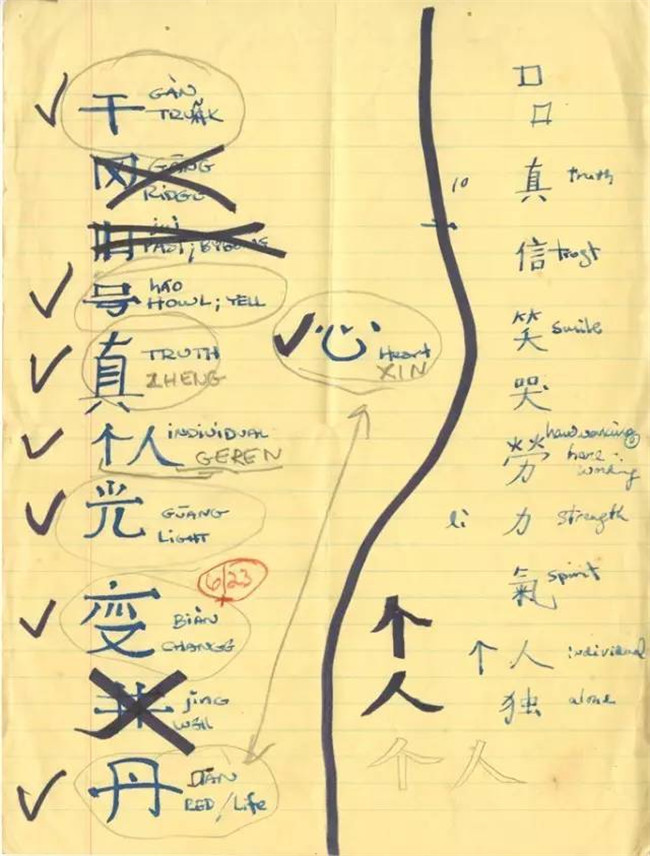 干 GÀN
TRUNK
冈 GĀNG
RIDGE
旧 jiù
号 HÁO
HOWL; YELL
真 TRUTH
ZHENG
个人 INDIVIDUAL
GEREN
光 GŪANG
LIGHT
变 BIÀN
CHANGE
6/23
井 jǐng
WELL
丹 DĀN
RED/Life
心 Heart
XIN
口
口
10
真 truth
信 trust
笑 smile
哭
勞 hardworking
hard
working
li 力 strength
氣 spirit
个人
个人 individual
独 alone
个人